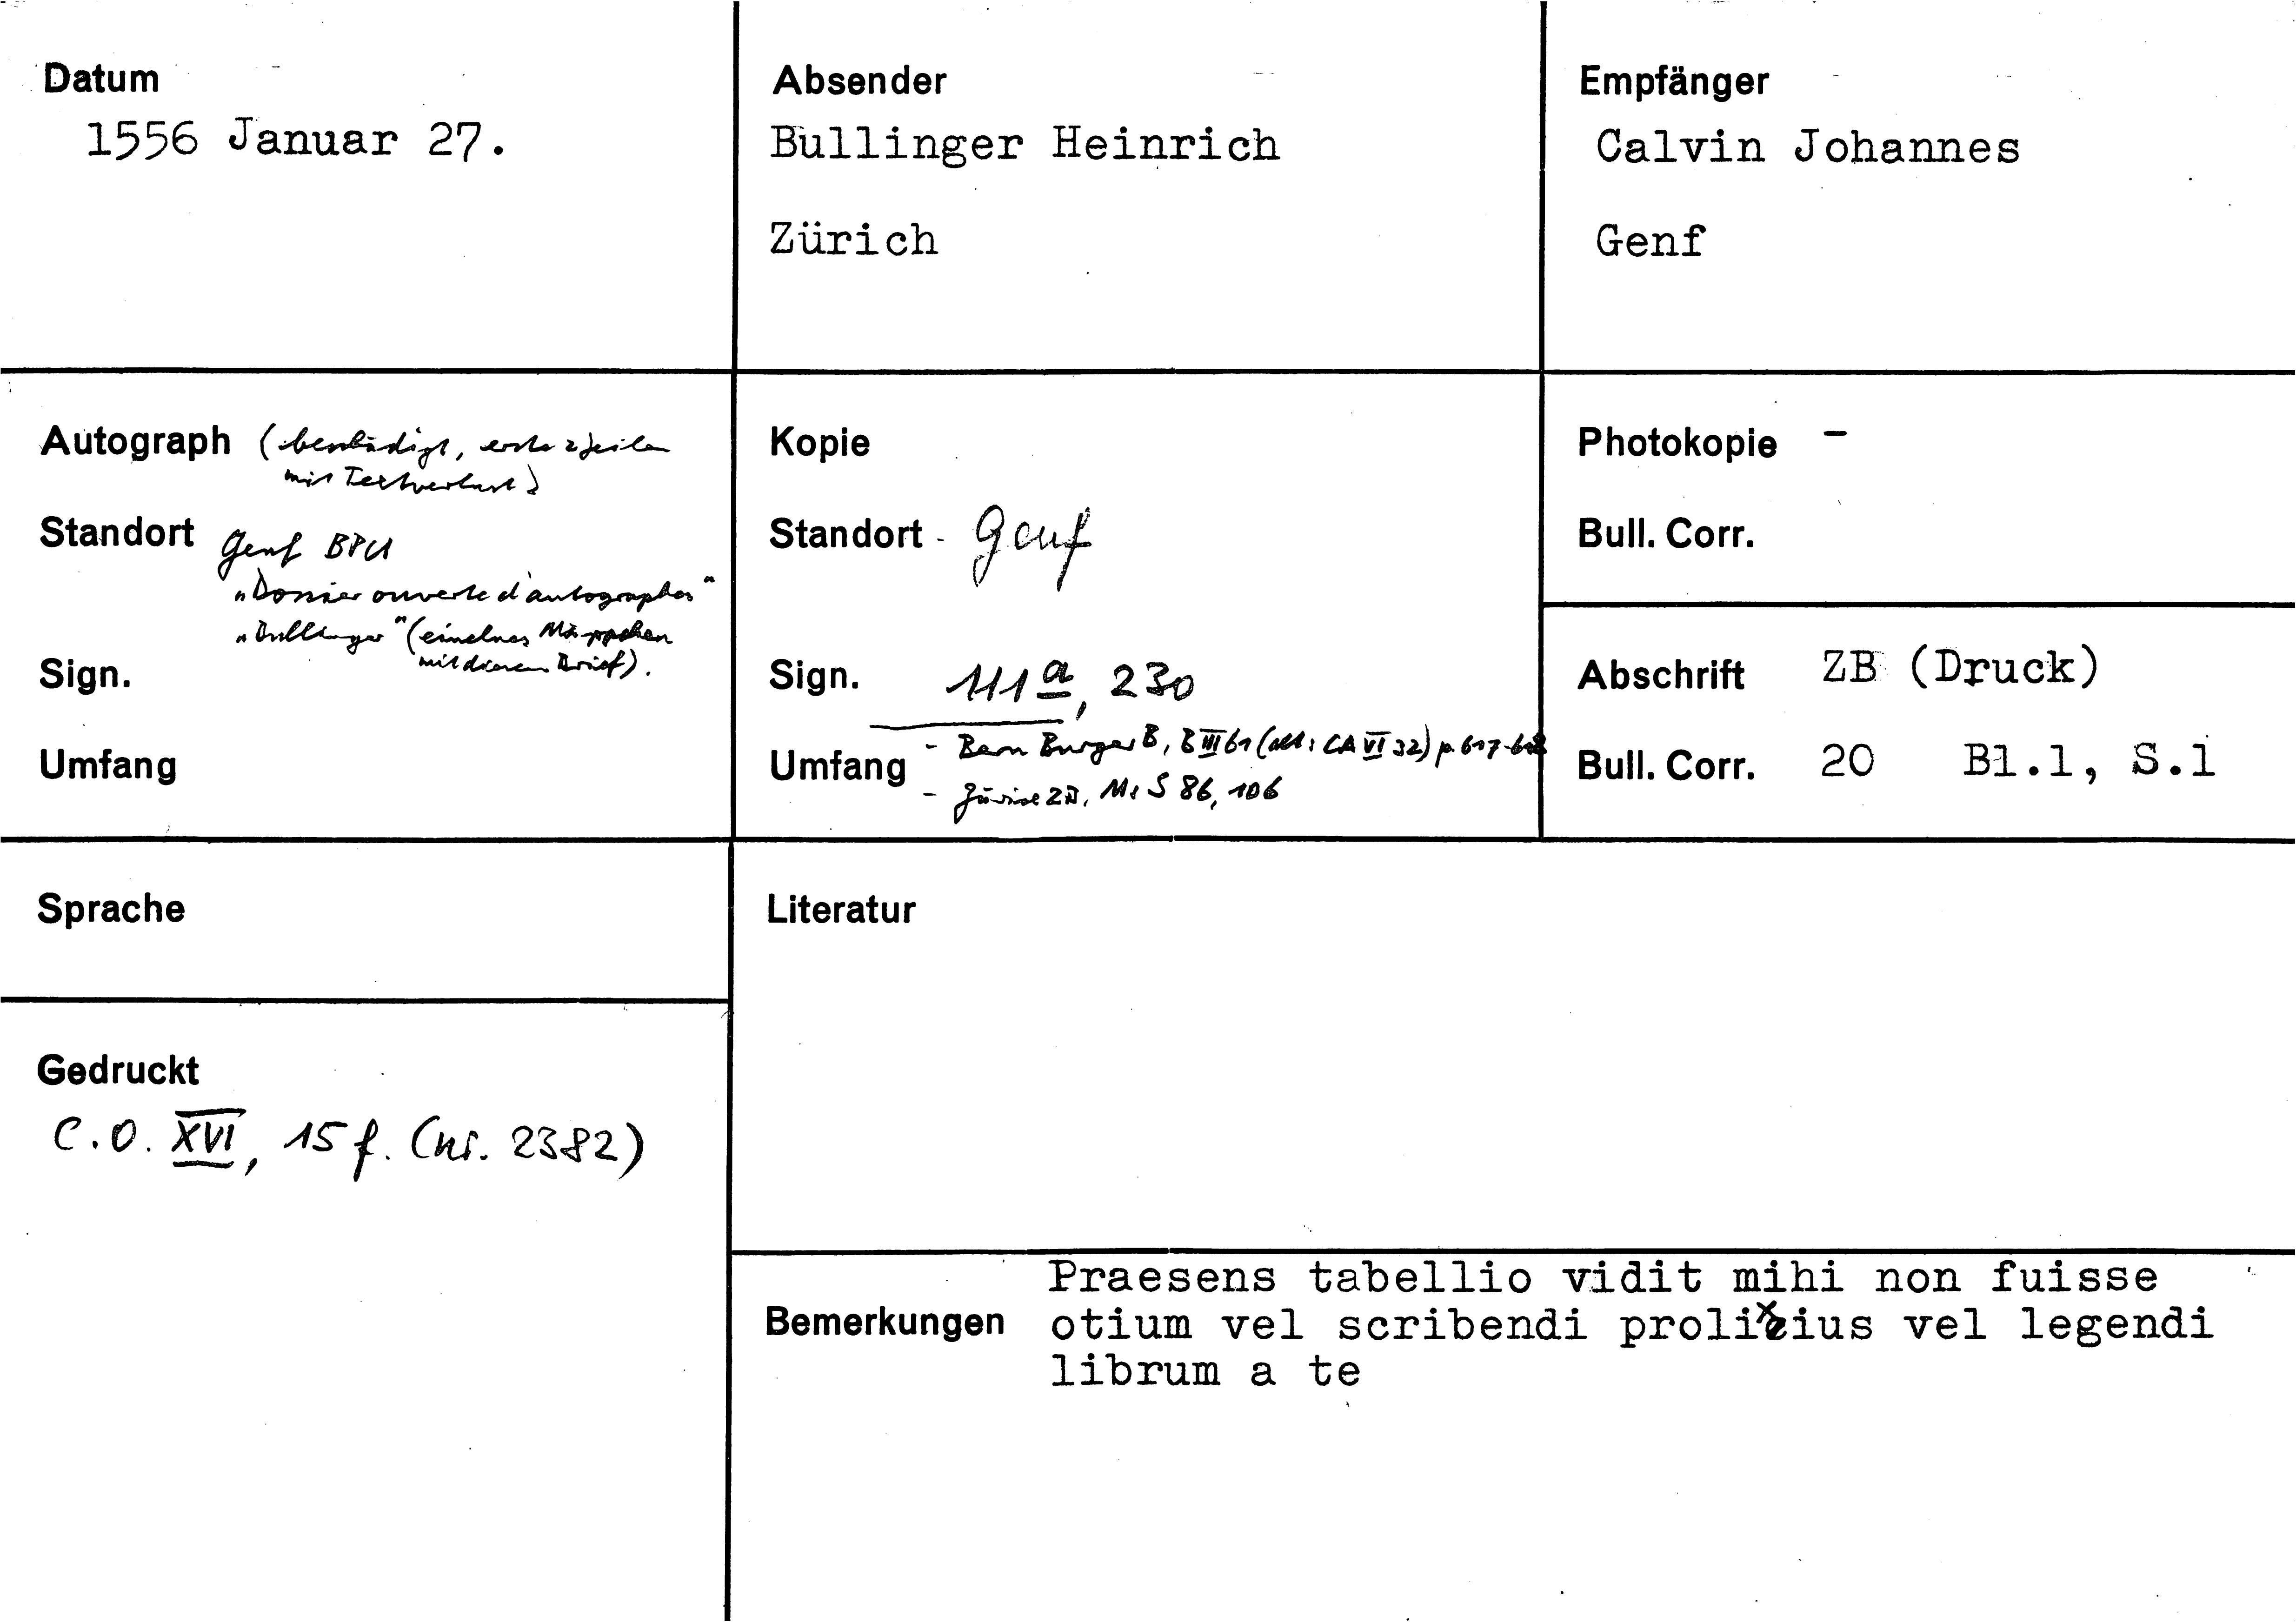 Datum
1556 Januar 27.
Absender
Bullinger Heinrich
Zürich
Empfänger
Calvin Johannes
Genf
Autograph (beschädigt, erste 2 Zeilen
mit Textverlust)
Standort Genf BPU
"Dossier ouverte d'autographes"
"Bullinger" (einzelnes Mäppchen
mit diesem Brief).
Sign.
Umfang
Kopie
Standort - Genf
Sign. 111a, 230
- Bern Burger B, B III 61 (alt: CA VI 32) p. 617-618
Umfang
- Zürich ZB, Ms S 86, 106
Photokopie -
Bull. Corr.
Abschrift ZB (Druck)
Bull. Corr. 20 Bl.1, S.1
Sprache
Gedruckt
C.O. XVI, 15 f. (nr. 2382)
Literatur
Bemerkungen
Praesens tabellio vidit mihi non fuisse
otium vel scribendi prolixius vel legendi
librum a te